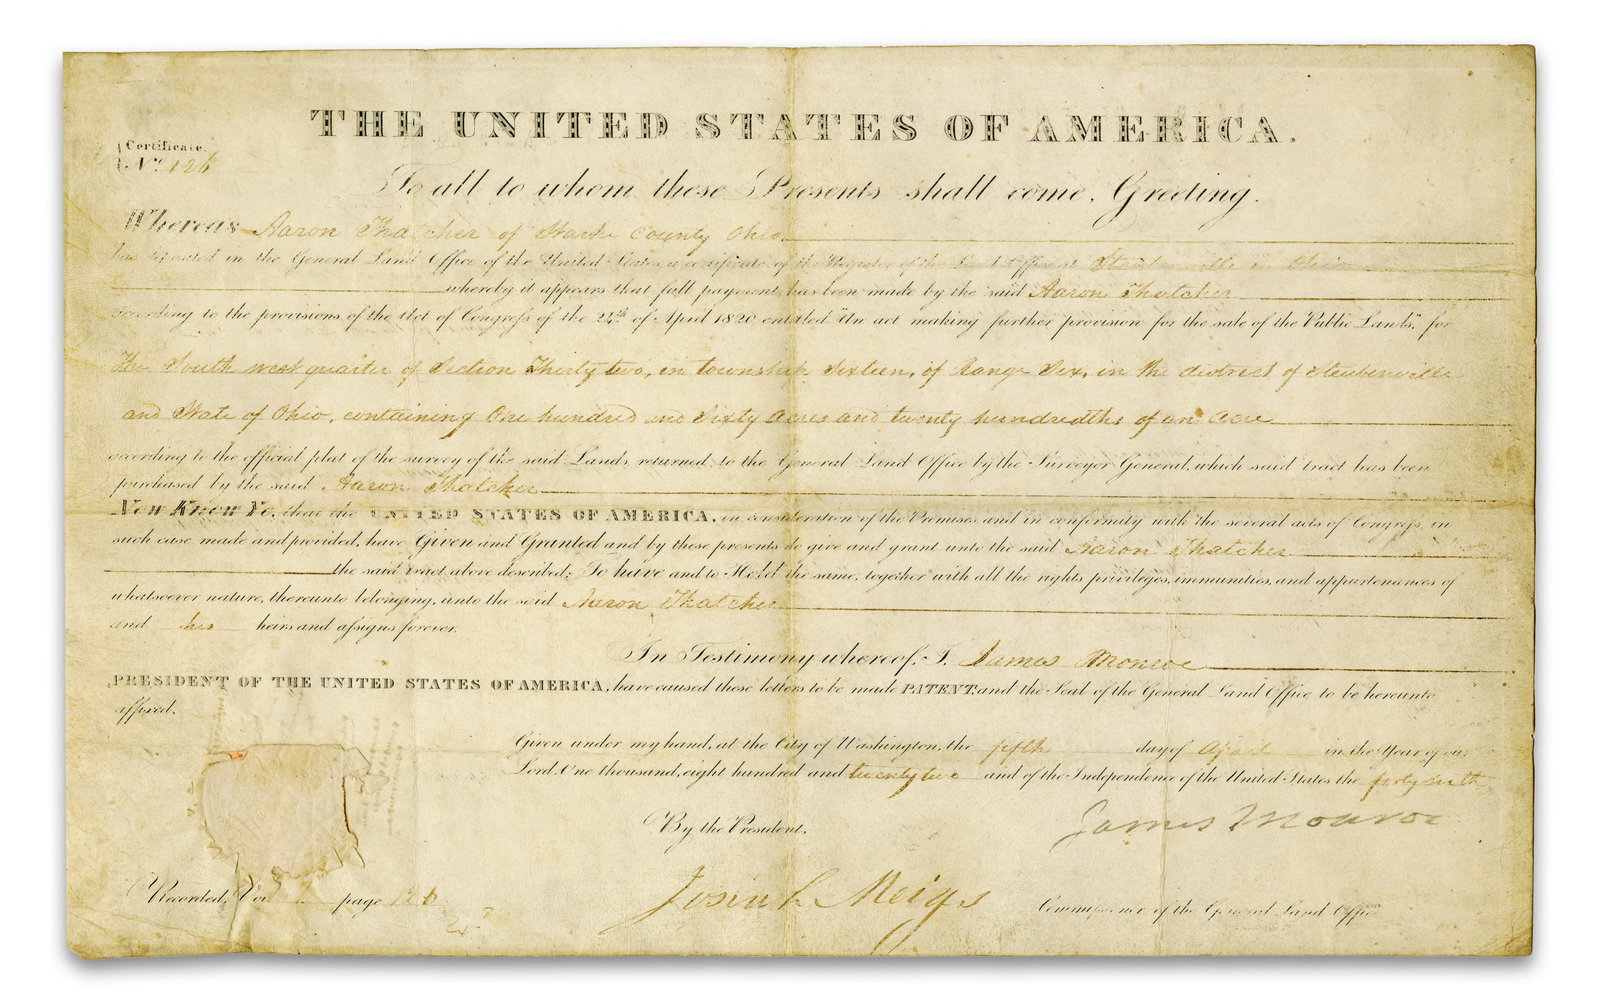 THE UNITED STATES OF AMERICA.
Certificate
No. 126
To all to whom these Presents shall come, Greeting.
Whereas Aaron Thatcher of Starke County Ohio
has deposited in the General Land Office of the United States, a certificate of the Register of the Land Office at Steubenville in Ohio
whereby it appears that full payment has been made by the said Aaron Thatcher
according to the provisions of the Act of Congress of the 24th of April 1820 entitled "An act making further provision for the sale of the Public Lands," for
The South west quarter of Section Thirty two, in township Sixteen, of Range Six, in the district of Steubenville
and State of Ohio, containing One hundred and Sixty Acres and twenty hundredths of an Acre
according to the official plat of the survey of the said Lands returned to the General Land Office by the Surveyor General, which said tract has been
purchased by the said Aaron Thatcher
Now Know Ye, that the UNITED STATES OF AMERICA, in consideration of the Premises and in conformity with the several acts of Congress, in
such case made and provided, have Given and Granted and by these presents do give and grant unto the said Aaron Thatcher
the said tract above described: To have and to Hold the same, together with all the rights privileges, immunities, and appurtenances of
whatsoever nature, thereunto belonging, unto the said Aaron Thatcher
and his heirs and assigns forever.
In Testimony whereof, I, James Monroe
PRESIDENT OF THE UNITED STATES OF AMERICA, have caused these letters to be made PATENT, and the Seal of the General Land Office to be hereunto
affixed.
Given under my hand, at the City of Washington, the fifth day of April in the Year of our
Lord, One thousand, eight hundred and twenty two and of the Independence of the United States the forty sixth
By the President.
James Monroe
Josiah Meigs
Commissioner of the General Land Office
Recorded, Vol page 126